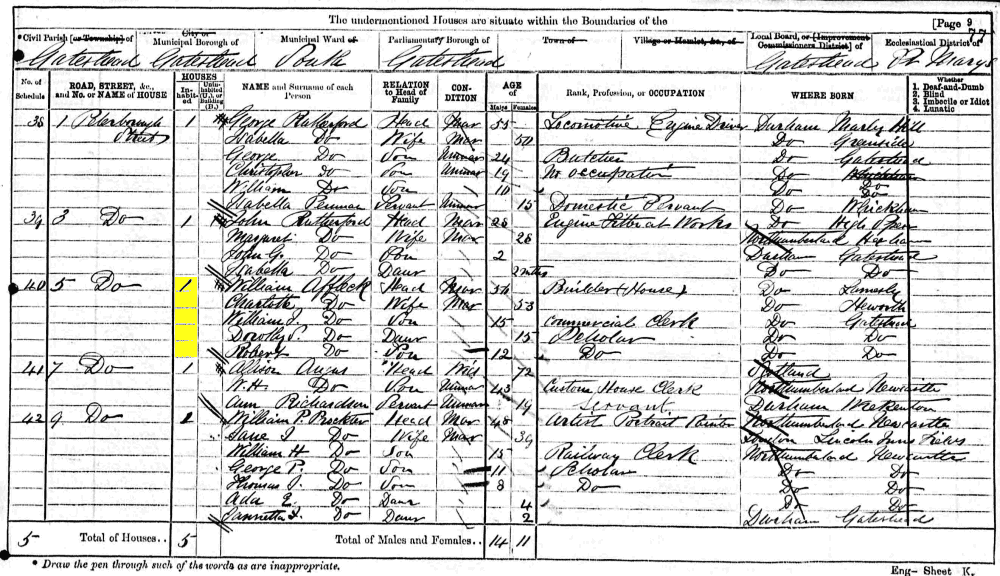 The undermentioned Houses are situate within the Boundaries of the
[Page 9
77
*Civil Parish [or Township] of
Gateshead
City or Municipal Borough of
Gateshead
Municipal Ward of
South
Parliamentary Borough of
Gateshead
Town of
Village or Hamlet, &c., of
Local Board, or [Improvement Commissioners District] of
Gateshead
Ecclesiastical District of
St. Mary's
No. of Schedule
ROAD, STREET, &c., and No. or NAME of HOUSE
HOUSES
In-habit-ed
Unin-habited (U.), or Building (B.)
NAME and Surname of each Person
RELATION to Head of Family
CON-DITION
AGE of
Males
Females
Rank, Profession, or OCCUPATION
WHERE BORN
Whether
1. Deaf-and-Dumb
2. Blind
3. Imbecile or Idiot
4. Lunatic
38 1 Peterborough Street 1 George Rutherford Head Mar 55 Locomotive Engine Driver Durham Marley Hill
Isabella Do Wife Mar 50 Do Greenside
George Do Son Unmar 24 Butcher Do Gateshead
Christopher Do Son Unmar 19 No occupation Do
William Do Son 10 " Do Do
Isabella Penman Servant Unmar 15 Domestic Servant Do Whickham
39 3 Do 1 John Rutherford Head Mar 28 Engine Fitter at Works Do High Spen
Margaret Do Wife Mar 28 Northumberland Hexham
John G. Do Son 2 Durham Gateshead
Isabella Do Daur 2 mths Do Do
40 5 Do 1 William Affleck Head Mar 54 Builder (House) Do Lamesley
Charlotte Do Wife Mar 53 Do Heworth
William J. Do Son 15 Commercial Clerk Do Gateshead
Dorothy J. Do Daur 15 Scholar Do Do
Robert Do Son 12 Do Do Do
41 7 Do 1 Allison Angas Head Wid 72 Scotland
W. H. Do Son Unmar 43 Custom House Clerk Northumberland Newcastle
Ann Richardson Servant Unmar 19 Servant Durham Wrekenton
42 9 Do 1 William P. Procktor Head Mar 48 Artist Portrait Painter Northumberland Newcastle
Jane J. Do Wife Mar 39 London Lincoln Inns Fields
William H Do Son 15 Railway Clerk Northumberland Newcastle
George P. Do Son 11 Scholar Do Do
Thomas J. Do Son 8 Do Do Do
Ada E. Do Daur 4 Do Do
Do Daur 2 Durham Gateshead
5 Total of Houses.. 5 Total of Males and Females.. 14 11
* Draw the pen through such of the words as are inappropriate.
Eng- Sheet K.